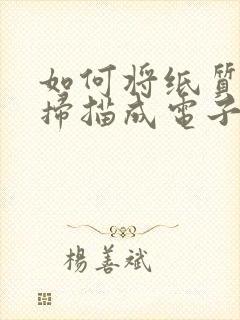 如何将纸質
掃描成電子
楊善斌